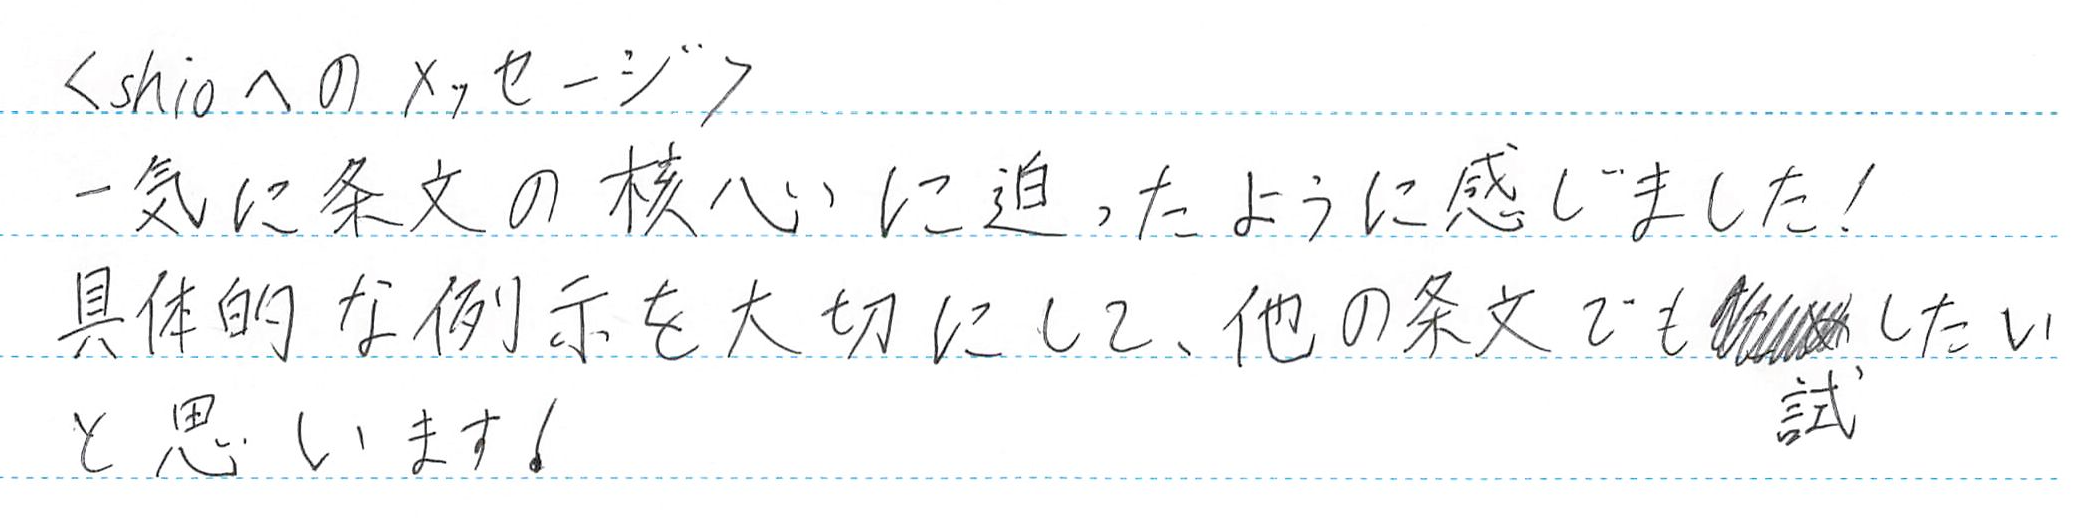 <shioへのメッセージ>
一気に条文の核心に迫ったように感じました!
具体的な例示を大切にして、他の条文でも試したい
と思います!